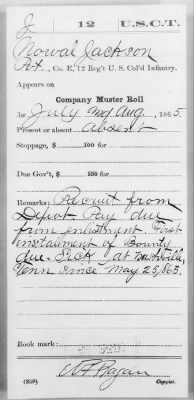 J 12 U.S.C.T.
Nowal Jackson
Pvt., Co. E, 12 Reg't U. S. Col'd Infantry.
Appears on
Company Muster Roll
for July and Aug., 1865.
Present or absent Absent
Stoppage, $ 100 for
Due Gov't, $ 100 for
Remarks: Recruit from
Depot Pay due
from enlistment. First
instalment of Bounty
due. Sick at Nashville,
Tenn since May 25, 1865.
Book mark:
(358) Copyist.